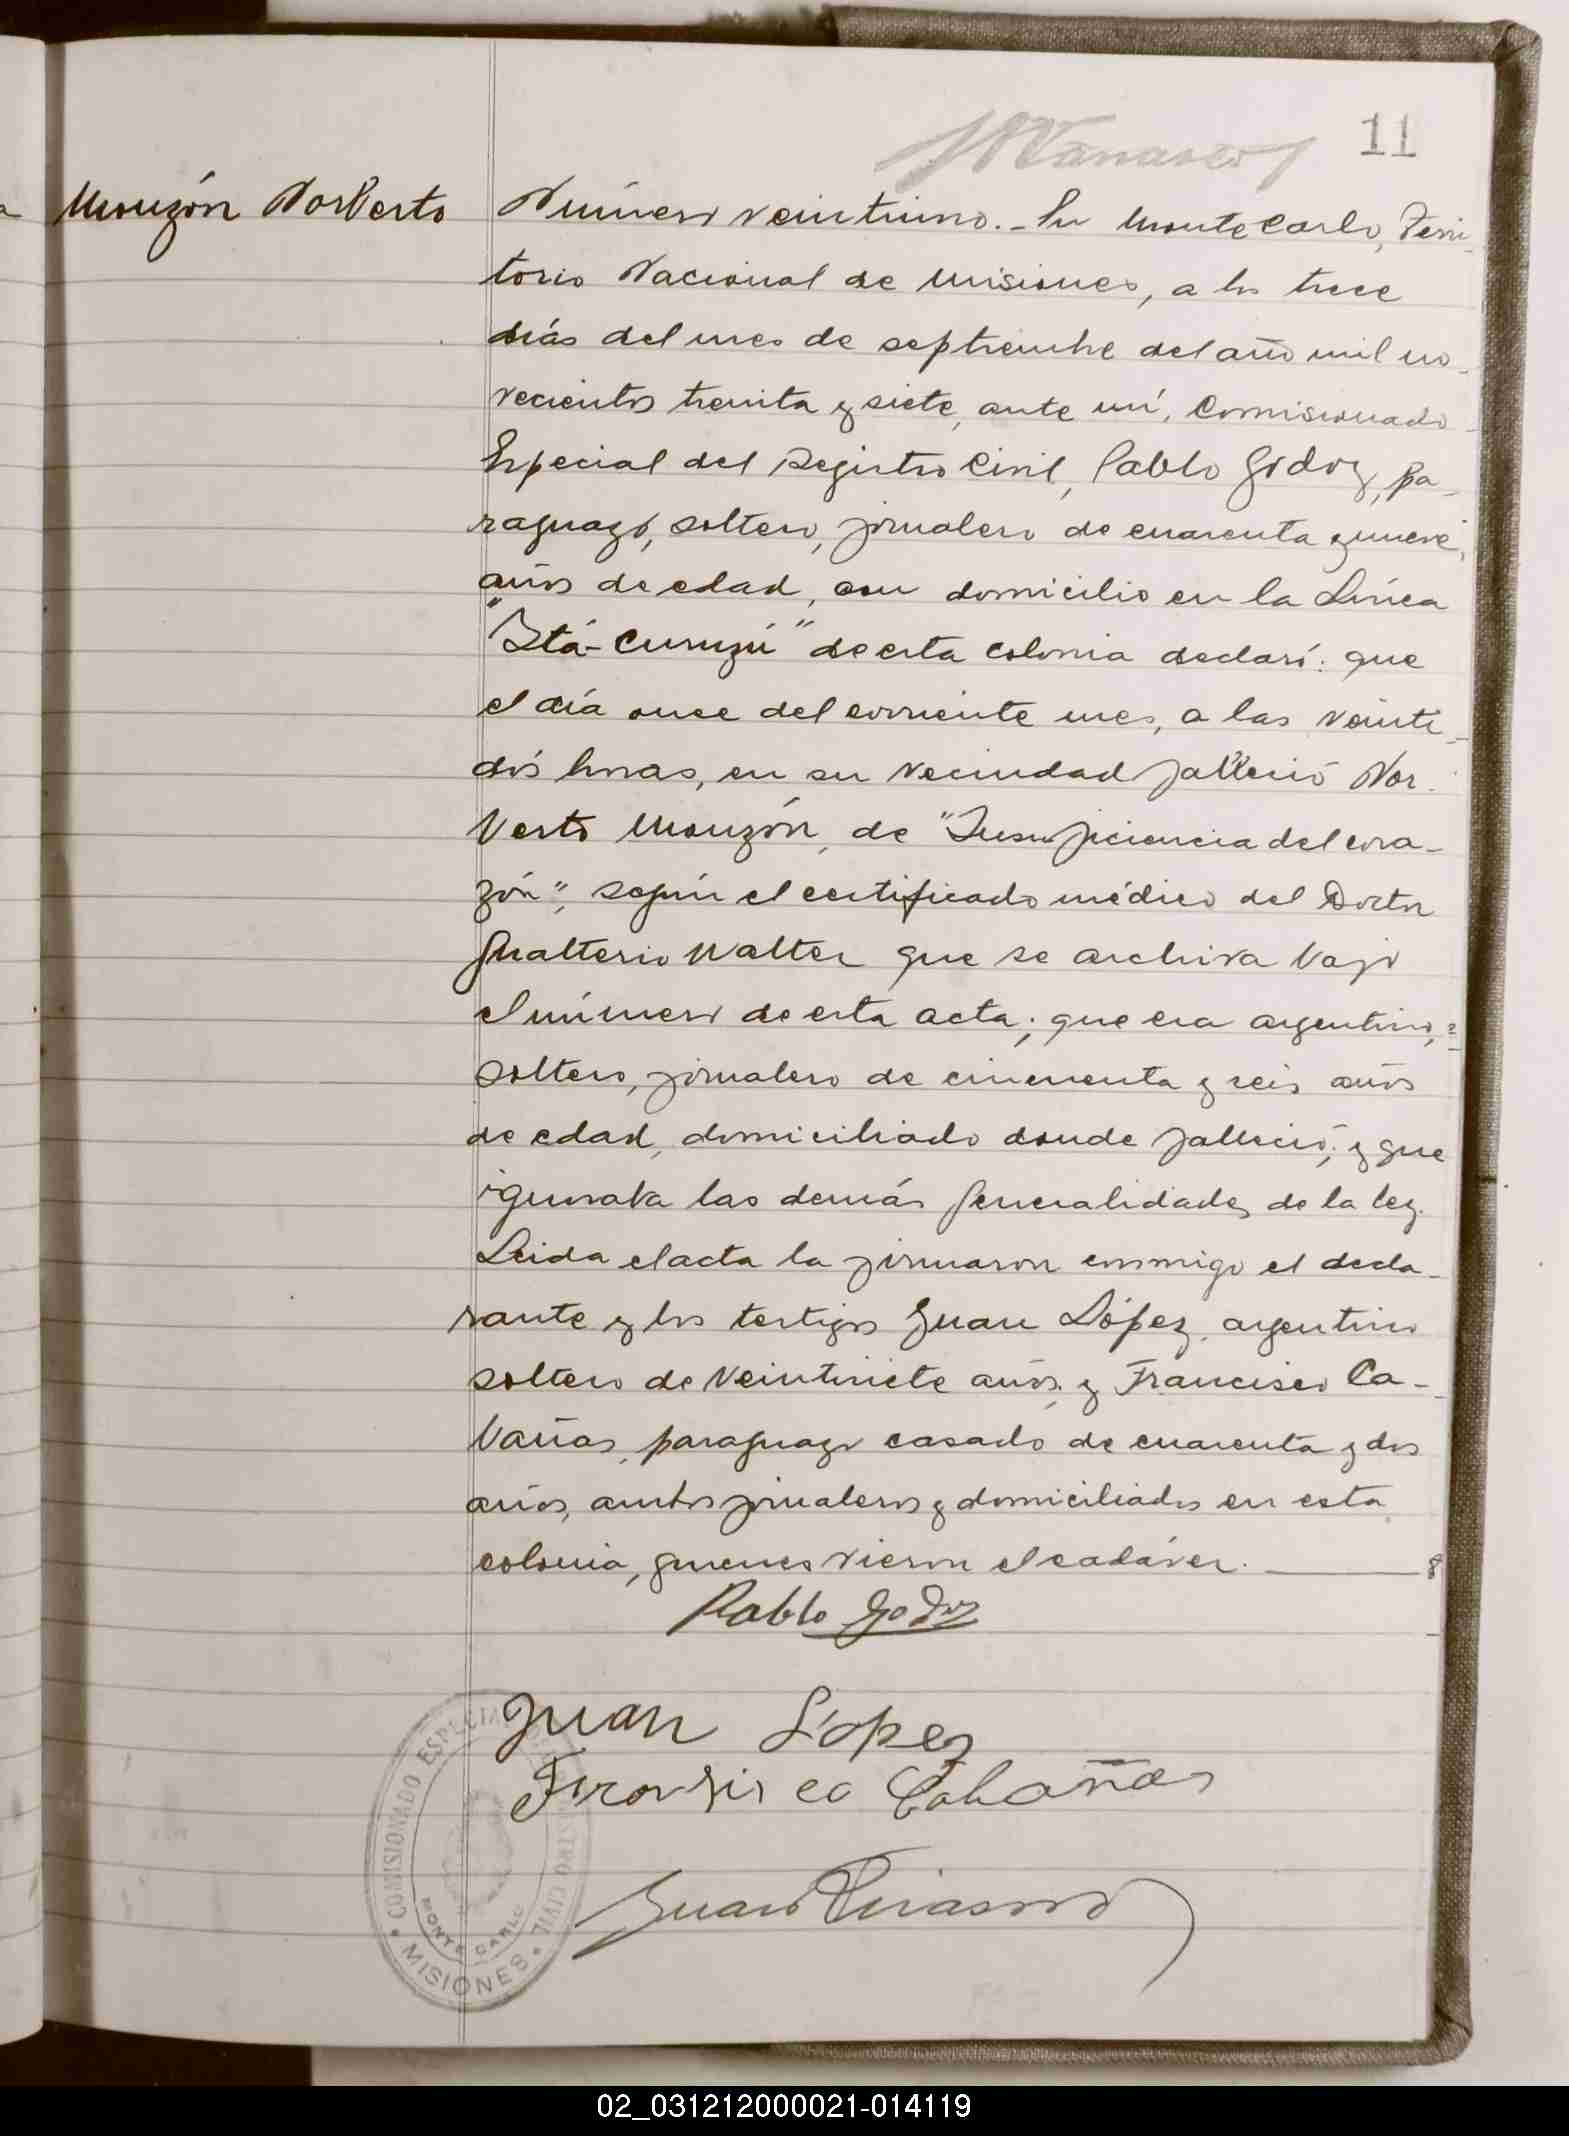 11
Monzón Norberto
Número veintiuno.- En Monte Carlo, Terri-
torio Nacional de Misiones, a los trece
días del mes de septiembre del año mil no-
vecientos treinta y siete, ante mí, Comisionado
Especial del Registro Civil, Pablo Godoy, pa-
raguayo, soltero, jornalero de cuarenta y nueve
años de edad, con domicilio en la Línea
"Itá-Curuzú" de esta colonia declaró: que
el día once del corriente mes, a las veinti-
dós horas, en su vecindad falleció Nor-
berto Monzón, de "Insuficiencia del cora-
zón", según el certificado médico del Doctor
Gualterio Walter que se archiva bajo
el número de esta acta; que era argentino,
soltero, jornalero de cincuenta y seis años
de edad, domiciliado donde falleció; y que
ignoraba las demás generalidades de la ley.
Leida el acta la firmaron conmigo el decla-
rante y los testigos Juan López, argentino
soltero de veintisiete años, y Francisco Ca-
bañas, paraguayo casado de cuarenta y dos
años, ambos jornaleros y domiciliados en esta
colonia, quienes vieron el cadáver.
Pablo Godoy
Juan López
Fransisco Cabañas
Juan
COMISIONADO ESPECIAL REGISTRO CIVIL
MONTE CARLO
MISIONES
02_031212000021-014119